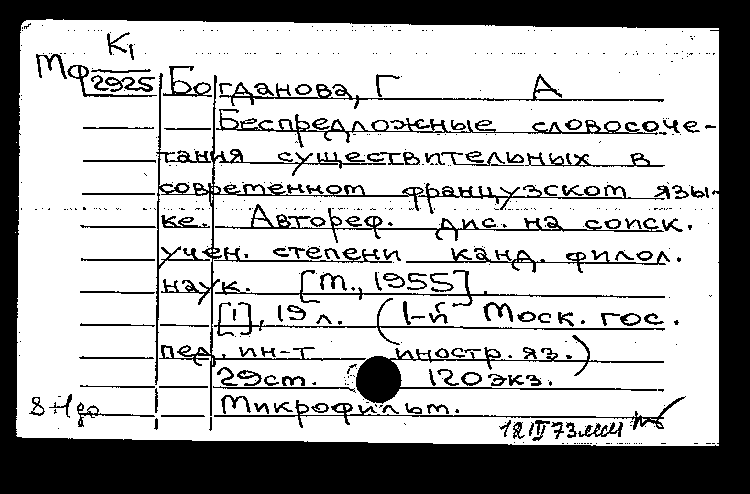 К1
Мф 2925
Богданова, Г А
Беспредложные словосоче-
тания существительных в
современном французском язы-
ке. Автореф. дис. на соиск.
учен. степени канд. филол.
наук. [М., 1955].
[1], 19 л. (1-й Моск. гос.
пед. ин-т иностр. яз.)
29см. 120 экз.
Микрофильм.
12 IV 73